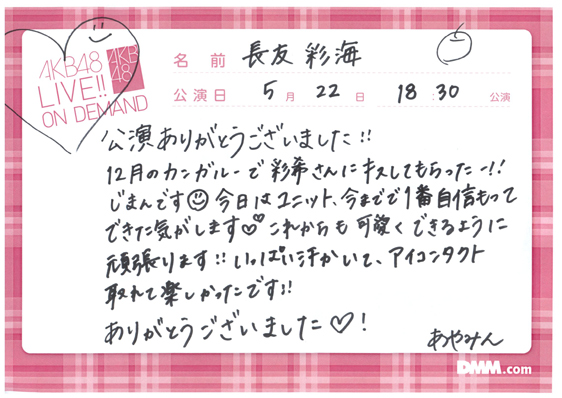 AKB48
LIVE!!
ON DEMAND
AKB
48
名前 長友彩海
公演日 5月22日 18:30 公演
公演ありがとうございました!!
12月のカンガルーで彩希さんにキスしてもらったー!!
じまんです 今日はユニット、今までで1番自信もって
できた気がします♡ これからも可愛くできるように
頑張ります!! いっぱい汗かいて、アイコンタクト
取れて楽しかったです!!
ありがとうございました♡!
あやみん
DMM.com